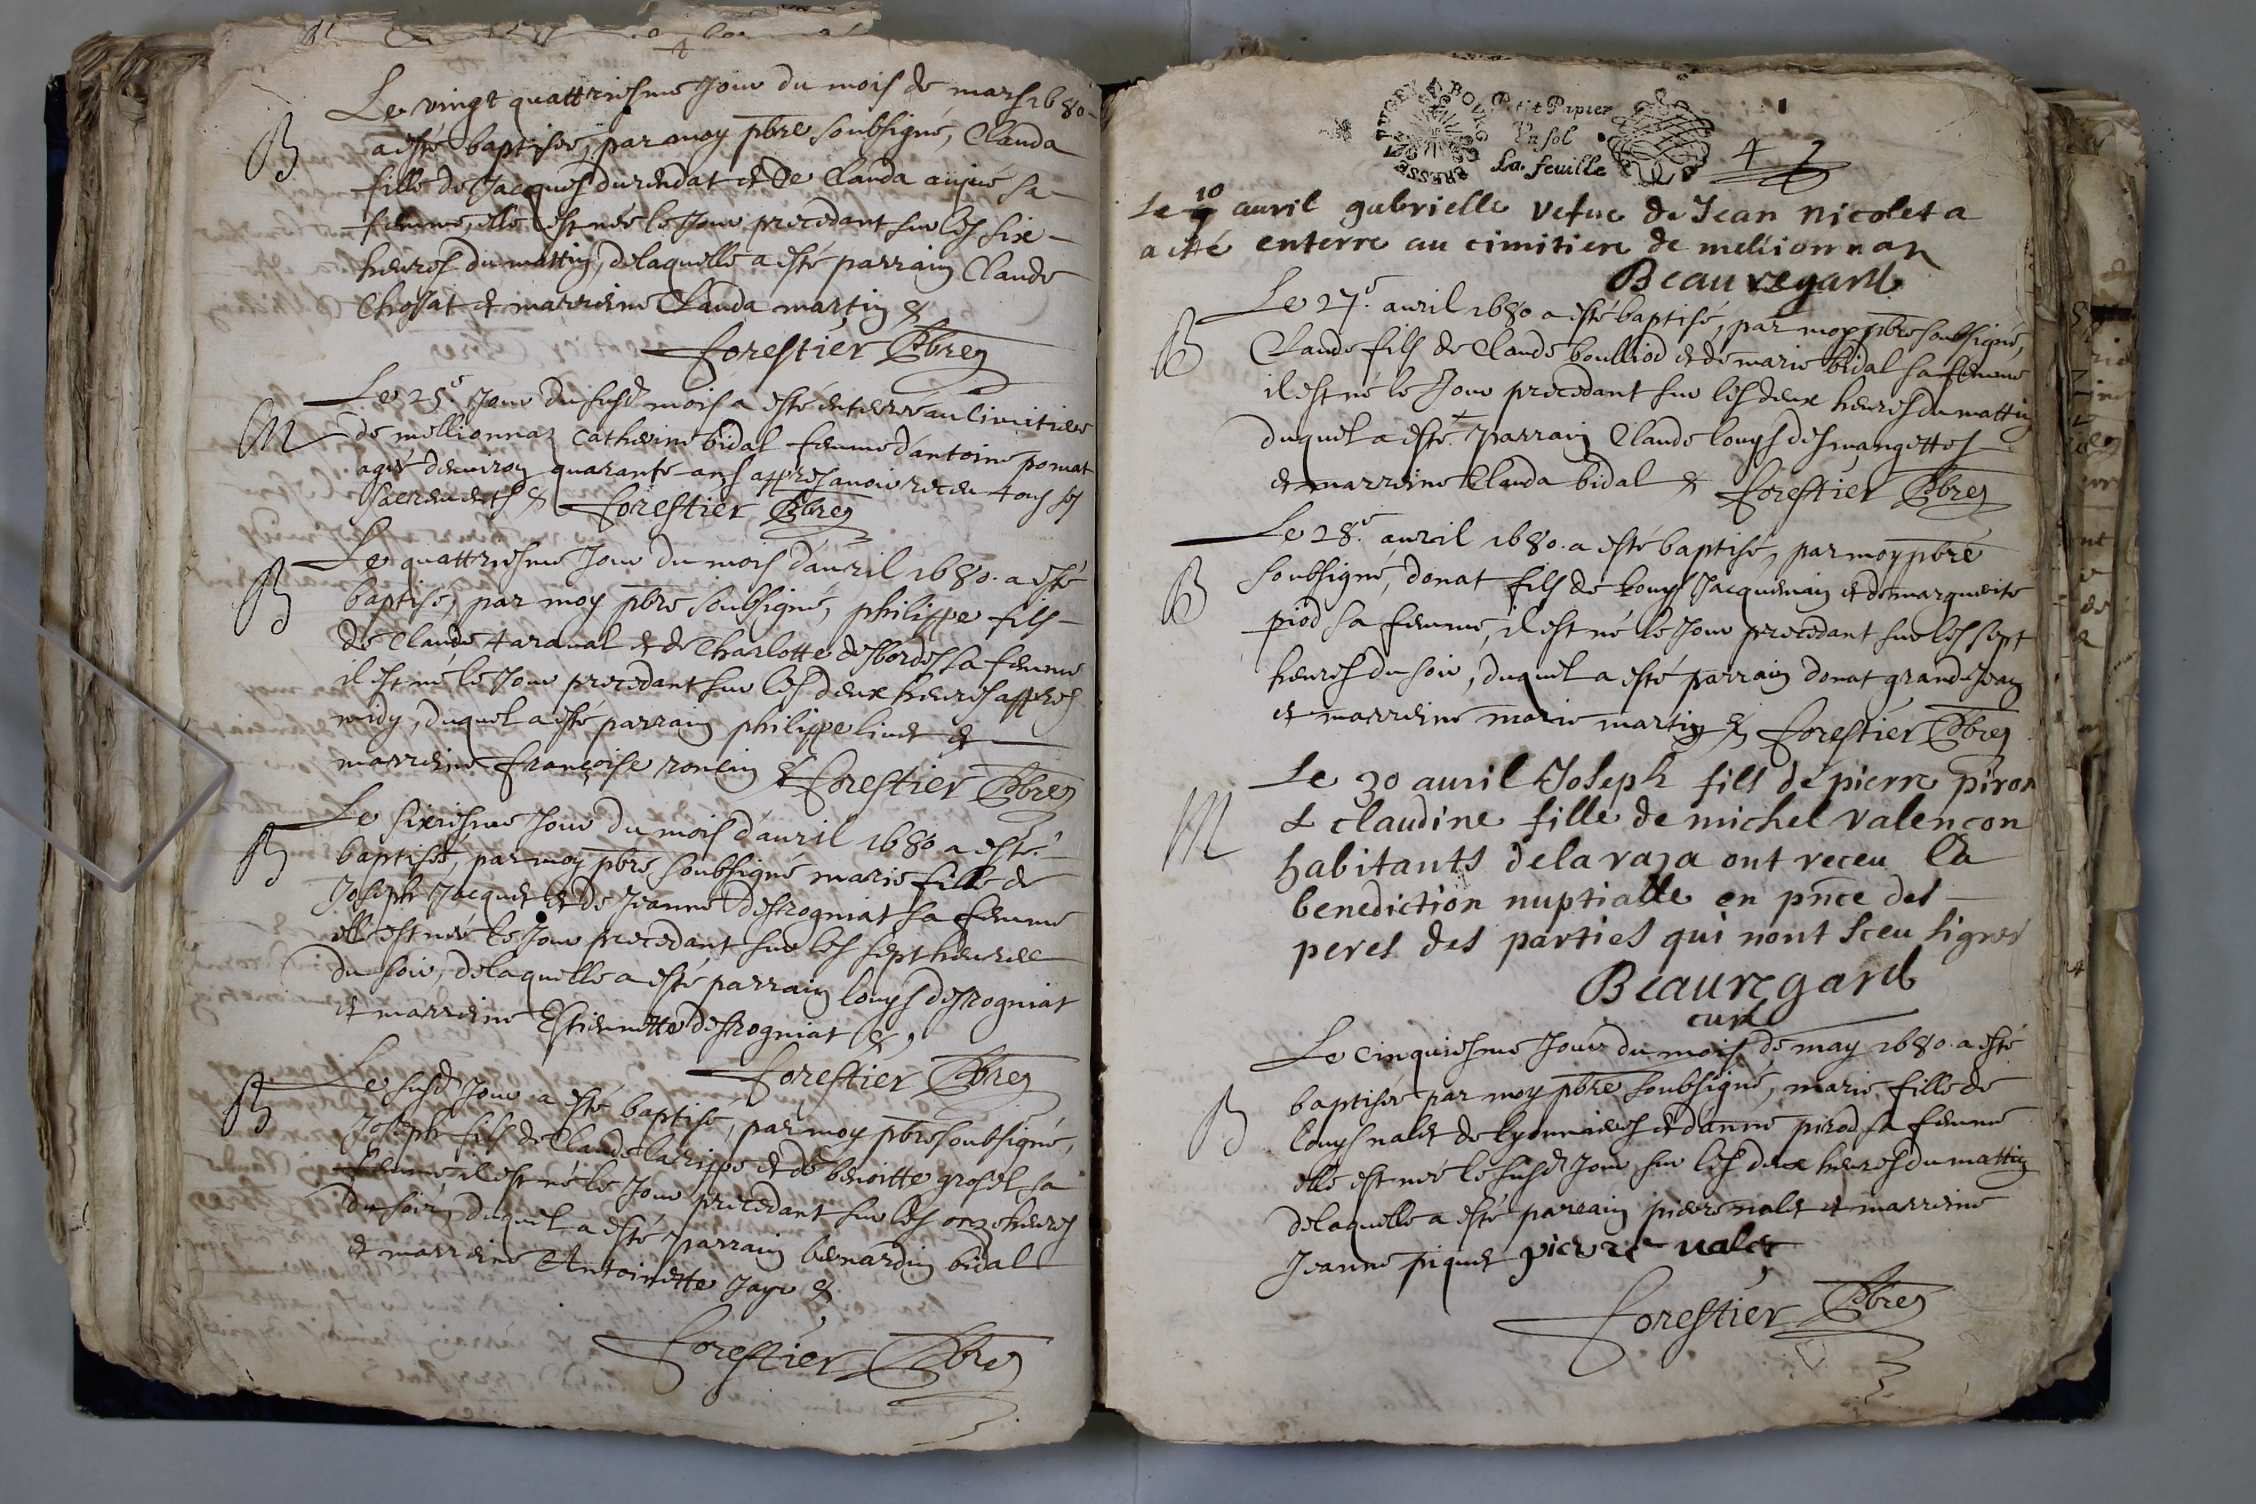 Le vingt quattriesme Jour du mois de mars 1680
B
a esté baptisée, par moy pbre soubsigné, Clauda
fille de Jacques durendat et de Clauda anjué sa
femme, elle est née le Jour precedant sur les six
heures du mattin, de laquelle a esté parrain Claude
Chossat et marreine Clauda martin &
Forestier Pbre
Le 25e Jour du susd mois a esté enterré au Cimitiere
M
de mellionnaz Catherine bidal femme dantoine pomat
agée denviron quarante ans appres avoir receu tous ses
sacrements & Forestier Pbre
Le quattriesme Jour du mois d'avril 1680. a esté
B
baptisé, par moy pbre soubsigné, philippe fils
de Claude taraval et de Charlotte desbordes sa femme
il est né le Jour precedant sur les deux heures appres
midy, duquel a esté parrain philippe livet et
marreine françoise roncin & Forestier Pbre
Le sixiesme Jour du mois d'avril 1680 a esté
B
baptisée, par moy pbre soubsigné marie fille de
Joseph Jacquet et de Jeanne desrogniat sa femme
elle est née le Jour precedant sur les sept heures
du soir, de laquelle a esté parrain louys desrogniat
et marreine Estiennette desrogniat &,
Forestier Pbre
Le susd Jour a esté baptisé, par moy pbre soubsigné,
B
Joseph fils de Claude larippe et de benoitte grosel sa
femme il est né le Jour precedant sur les onze heures
du soir, duquel a esté parrain bernardin bidal
et marreine Antoinette Jayr &
Forestier Pbre
Petit Papier
Un sol
La feuille
42
10
Le avril gabrielle vefue de Jean nicolet a
a été enterre au cimitiere de mellionnaz
Beauregard
Le 27e avril 1680 a esté baptisé, par moy pbre soubsigné,
B
Claude fils de Claude boulliod et de marie bidal sa femme
il est né le Jour precedant sur les deux heures du mattin
duquel a esté parrain Claude louys desmangettes
et marreine Clauda bidal & Forestier Pbre
Le 28e avril 1680. a esté baptisé, par moy pbre
B
soubsigné, donat fils de louys Jacquemin et de marguerite
piod sa femme, il est né le Jour precedant sur les sept
heures du soir, duquel a esté parrain donat grandjean
et marreine marie martin & Forestier Pbre
Le 30 auril Joseph fils de pierre piron
M
& claudine fille de michel valençon
habitants de la raza ont receu la
benediction nuptialle en pnce des
peres des parties qui nont sceu signer
Beauregard
curé
Le Cinquiesme Jour du mois de may 1680. a esté
B
baptisée par moy pbre soubsigné, marie fille de
louys nalet de lyonnieres et d'anne pirod sa femme
elle est née le susd Jour sur les deux heures du mattin
de laquelle a esté parrain pierre nalet et marreine
Jeanne piquet pierre nalet
Forestier Pbre